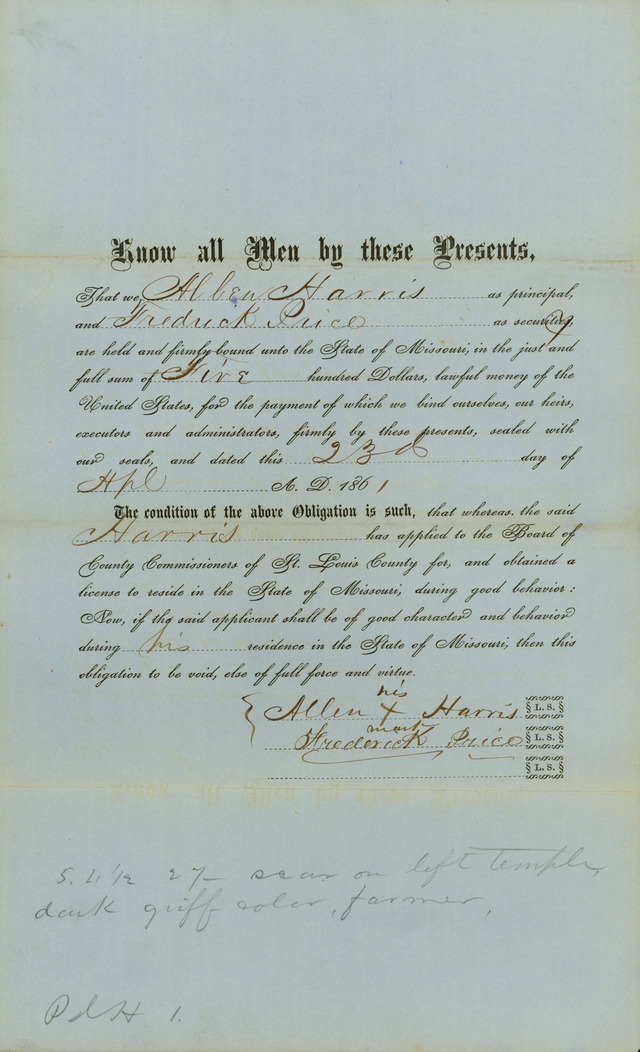 Know all Men by these Presents,
That we Allen Harris as principal,
and Fredrick Price as security,
are held and firmly bound unto the State of Missouri, in the just and
full sum of Five hundred Dollars, lawful money of the
United States, for the payment of which we bind ourselves, our heirs,
executors and administrators, firmly by these presents, sealed with
our seals, and dated this 23d day of
Apl A. D. 1861
The condition of the above Obligation is such, that whereas the said
Harris has applied to the Board of
County Commissioners of St. Louis County for, and obtained a
license to reside in the State of Missouri, during good behavior:
Now, if the said applicant shall be of good character and behavior
during his residence in the State of Missouri, then this
obligation to be void, else of full force and virtue.
his
Allen X Harris L. S.
mark
Frederick Price L. S.
L. S.
5. 4 1/2 27 — scar on left temple,
dark griff color, farmer,